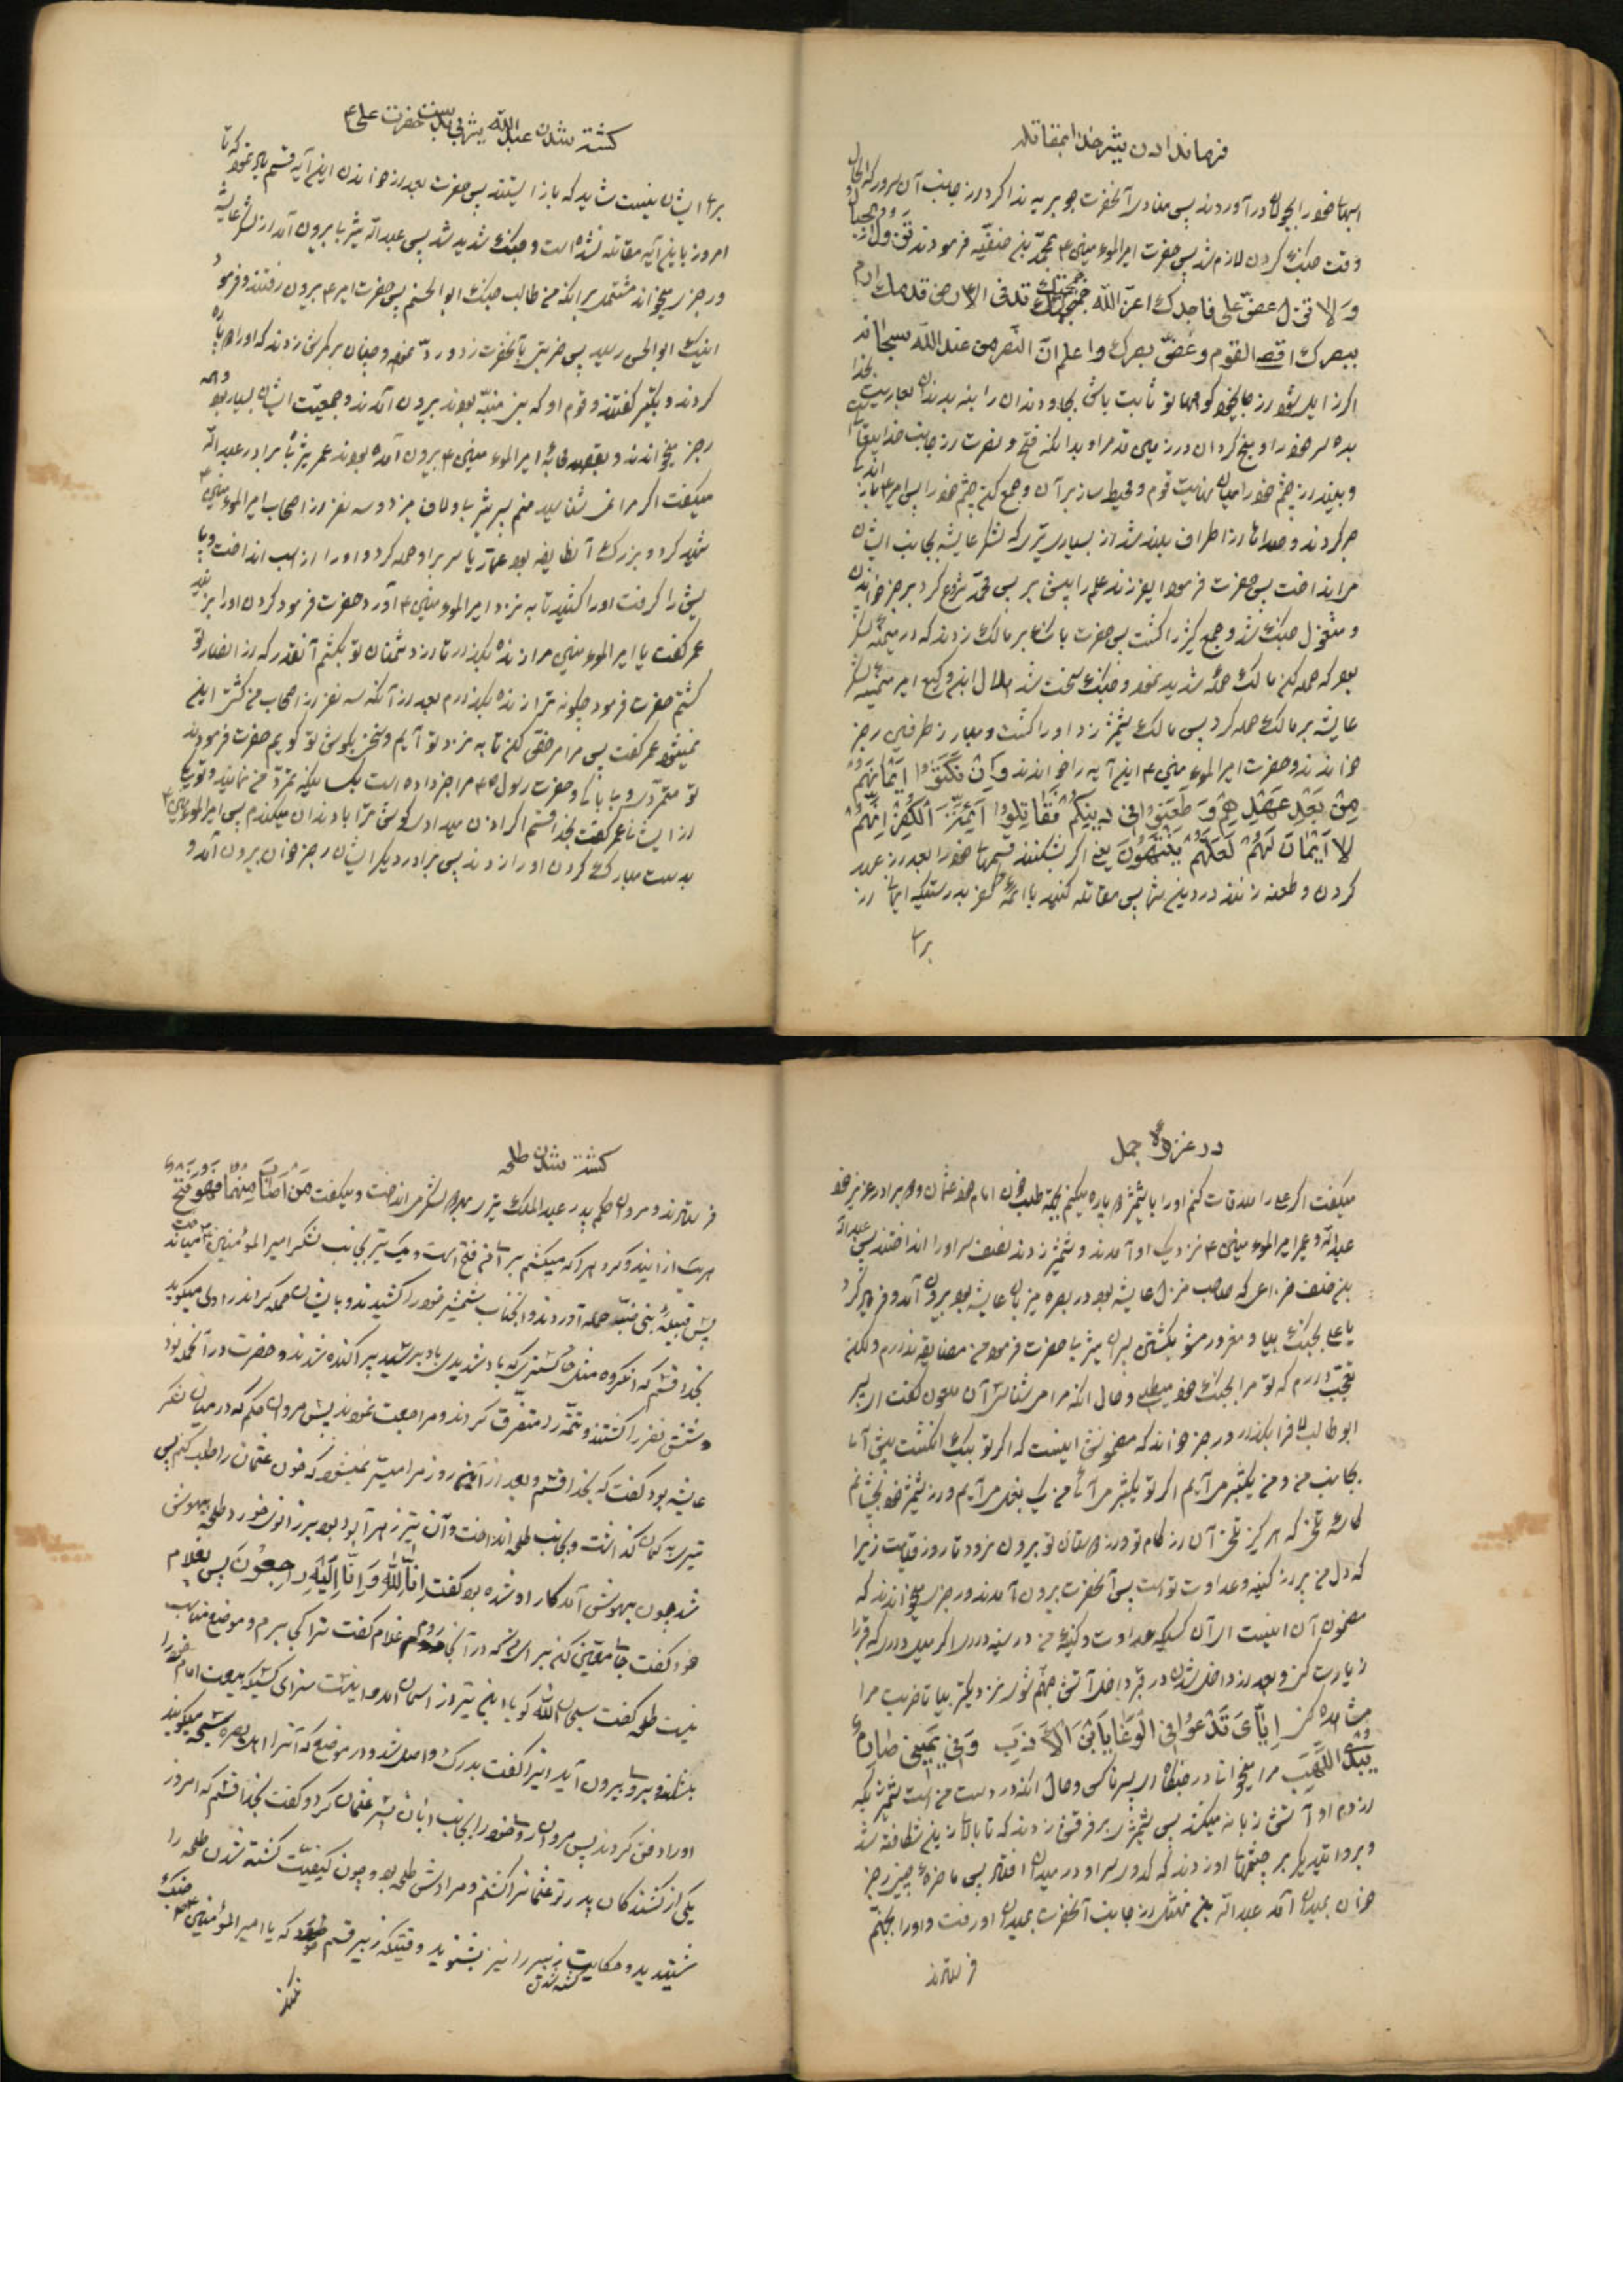 فرمان دادن بشیر خدا بمقاتله
اسبها خود را بجولان درآوردند پس منادی آنحضرت جویریه ندا کرد از جانب آن سرور که الحال
وقت جنگ کردن لازم شد پس حضرت امیرالموءمنین ۴ بمحمد بن حنفیه فرمودند تزول الجبال
و لا تزل عض علی ناجذک اعر الله جمجمتک تد فی الارض قدمک ارم
ببصرک اقصی القوم و غض بصرک و اعلم ان النصر من عند الله سبحانه
اگر زایل شود از جا کوهها تو ثابت باش بجا و دندان را بنه بدندان بعاریت بخدا
بده سر خود را و میخ کردان در زمین قدم را و بدانکه فتح و نصرت از جانب خدا
و بینداز چشم خود را به نهایت قوم و جمع کن چشم خود را پس امیر ۴
حرکت کردند و صداها از اطراف بلند شد از بسیاری تیری که لشکر عایشه بجانب ایشان
می انداخت پس حضرت فرمود ای فرزند علم را پیش بر پس محمد شروع کرد برجز خواندن
و مشغول جنگ شد و جمع کثیر را کشت پس حضرت بانگ بر مالک زدند که در میمنه لشکر
بود که حمله کن مالک حمله شدید نمود و جنگ سخت شد هلال ابن وکیع امیر میمنه لشکر
عایشه بر مالک حمله کرد پس مالک شمشیر زد او را کشت و مبارز طرفین رجز
خواندند و حضرت امیرالموءمنین ۴ این آیه را خواندند و ان نکثوا ایمانهم
من بعد عهدهم و طعنوا فی دینکم فقاتلوا ائمة الکفر انهم
لا ایمان لهم لعلهم ینتهون یعنی اگر بشکنند قسمها خود را بعد از عهد
کردن و طعنه زنند در دین شما پس مقاتله کنید با ائمه کفر بدرستیکه ایمان از
برا
کشته شدن عبدالله یثربی بدست حضرت علی ۴
برا ایشان نیست شاید که باز ایستند پس حضرت بعد از خواندن این آیه قسم یاد نمود که تا
امروز باین آیه مقاتله نشده است و جنگ شدید شد پس عبدالله یثربی بیرون آمد از لشکر عایشه
و رجز میخواند مشتمل برانکه من طالب جنگ ابوالحسنم پس حضرت امیر ۴ بیرون رفتند و فرمود
اینک ابوالحسن رسید پس ضربتی بآنحضرت زد و رد نمود و چنان بر کمرش زدند که او را دو پاره
کردند و تکبیر گفتند و قوم او که بنی ضبه بودند بیرون آمدند و جمعیت ایشان بسیار بود
رجز میخواندند و بقصد امیرالموءمنین ۴ بیرون آمده بودند عمر یثربی برادر عبدالله
میگفت اگر مرا نمی شناسید منم پسر یثربی و لاف میزد و سه نفر از اصحاب امیرالموءمنین ۴
شهید کرد و بزرگ آن طایفه بود عمار یاسر بر او حمله کرد و او را از اسب انداخت و پا
یش را گرفت او را کشید تا به نزد امیرالموءمنین ۴ آورد حضرت فرمود گردن او را بزنند
عمر گفت یا امیرالموءمنین مرا زنده بگذار تا از دشمنان تو بکشم آنقدر که از انصار تو
کشتم حضرت فرمود چگونه ترا زنده بگذارم بعد از آنکه سه نفر از اصحاب من کشتی این
نمیشود عمر گفت پس مرا مرخص کن تا به نزد تو آیم و سخنی بگوش تو گویم حضرت فرمودند
تو متمرد و بیباکی و حضرت رسول ص مرا خبر داده است
از ایشان عمر گفت بخدا قسم اگر اذن میدادی گوش ترا با دندان میکندم پس امیرالموءمنین ۴
بدست مبارک گردن او را زدند پس برادر دیگر ایشان رجز خوان بیرون آمد و
در غزوه جمل
میگفت اگر علی را ملاقات کنم او را با شمشیر دو پاره میکنم بجهة طلب خون امام خود عثمان و دو برادر عزیز خود
عبدالله و عمر امیرالموءمنین ۴ نزدیک او آمدند و شمشیر زدند نصف سر او را انداختند پس عبدالله
بن خلف خزاعی که صاحب منزل عایشه بود در بصره میزبان عایشه بود بیرون آمد و فریاد کرد
یا علی بجنگ بیا و مغرور مشو بکشتن پسران یثربی حضرت فرمود من مضایقه ندارم ولکن
تعجب دارم که تو مرا بجنگ خود میطلبی و حال انکه مرا می شناسی آن ملعون گفت ای پسر
ابوطالب فرا بگذار و رجز خواند که مضمونش اینست که اگر تو بیک انگشت پیش آئی
بجانب من و من یک شبر می آیم اگر تو یک شبر می آئی من یک بغل می آیم و از شمشیر خود بچشانم
کاسه تلخی که هرگز تلخی آن از کام تو و از دهان تو بیرون نرود تا روز قیامت زیرا
که دل من پر از کینه و عداوت تو است پس آنحضرت بیرون آمدند و رجزی میخواندند که
مضمون آن اینست ای آن کسیکه عداوت و کینه من در سینه داری اگر میل داری که قبر را
زیارت کنی و بعد از داخل شدن در قبر داخل آتش جهنم شوی نزدیکتر بیا تا ضربت مرا
مشاهده کنی ایای تدعو فی الوغا یا بن الارب و فی یمینی صارم
یبدی اللهب مرا میخوانی در جنگ ای پسر ناکس و حال انکه در دست من است شمشیریکه
از دم او آتش زبانه میکشد پس شمشیر بر فرقش زدند که تا بالای زین شکافته شد
خوان بمیدان آمد عبدالله بن نهشل از جانب آنحضرت بمیدان او رفت و او را بجهنم
فرستاد
کشته شدن طلحه
فرستادند و مروان حکم پدر عبدالملک تیر بهر دو لشکر می انداخت و میگفت من اصاب منهما فهو فتح
پیش قبیله بنی ضبه حمله آوردند و آنجناب شمشیر خود را کشیدند و بایشان حمله کردند راوی میگوید
بخدا قسم که انگروه مثل خاکستری که باد شدیدی باو برسد پراکنده شدند و حضرت در آن حمله خود
شش نفر را کشتند و تتمه را متفرق کردند و مراجعت نمودند پس مروان حکم که در میان لشکر
عایشه بود گفت که بخدا قسم بعد از این روز مرا میسر نمیشود که خون عثمان را طلب کنم پس
تیری به کمان گذاشت و بجانب طلحه انداخت و آن تیر زهر آلود بود بر زانوی خورد طلحه بیهوش
شد چون بهوش آمد کار او شده بود گفت انا لله و انا الیه راجعون پس بغلام
خود گفت جا معین کن برای من که در آنجا روم غلام گفت ترا کجا برم و موضع مناسب
نیست طلحه گفت سبحان الله گویا این تیر از آسمان آمد و اینست سزای کسیکه بیعت امام خود را
بشکند و بر او بیرون آید اینرا گفت بدرک واصل شد و در موضعی که آنرا اهل بصره سبخه میگویند
او را دفن کردند پس مروان رو خود را بجانب ابان پسر عثمان کرد و گفت بخدا قسم که امروز
یکی از کشندگان پدر تو عثمان را کشتم و مرادش طلحه بود و چون کیفیت کشته شدن طلحه را
شنیدید و حکایت کشته شدن زبیر را نیز بشنوید وقتیکه زبیر قسم خورد که یا امیرالموءمنین ۴ جنگ
نکند